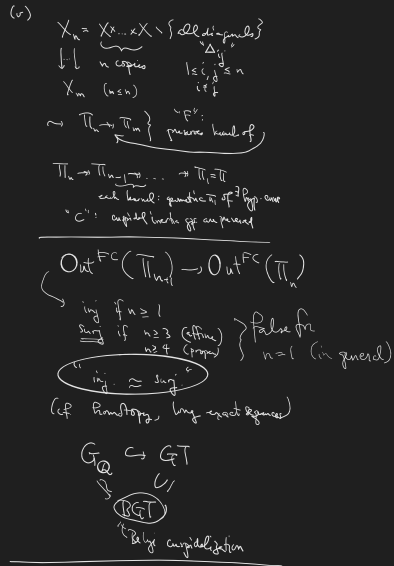 (v)
X_n = X × ... × X \ {all diagonals}
n copies "Δ_ij"
1 ≤ i, j ≤ n
i ≠ j
X_m (m ≤ n)
⇝ Π_n → Π_m } "F":
preserves kernel of
Π_n → Π_{n-1} → ... → Π_1 = Π
each kernel: geometric π_1 of ∃ hyp. curve
"C": cuspidal inertia gps are preserved
Out^{FC}(Π_{n+1}) → Out^{FC}(Π_n)
inj if n ≥ 1
surj if n ≥ 3 (affine)
n ≥ 4 (proper)
} false for
n=1 (in general)
"inj. ≈ surj."
(cf homotopy, long exact sequences)
G_Q ↪ GT
BGT
"Belyi cuspidalization